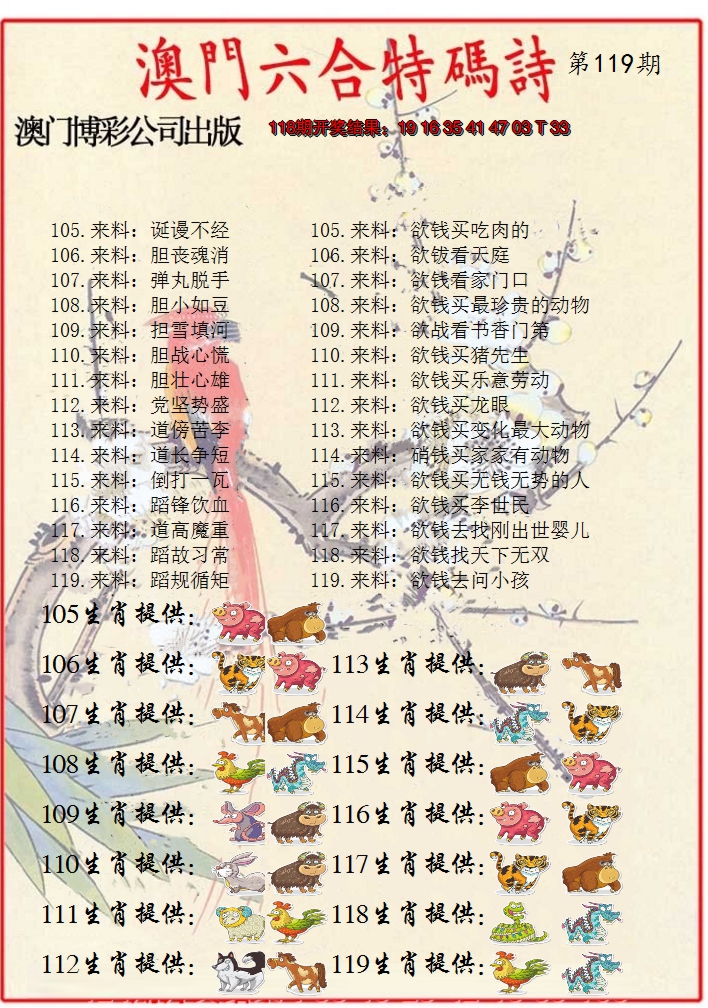 澳門六合特碼詩 第119期
澳门博彩公司出版 118期开奖结果：19 16 35 41 47 03 T 33
105.来料：诞谩不经 105.来料：欲钱买吃肉的
106.来料：胆丧魂消 106.来料：欲钹看天庭
107.来料：弹丸脱手 107.来料：欲钱看家门口
108.来料：胆小如豆 108.来料：欲钱买最珍贵的动物
109.来料：担雪填河 109.来料：欲战看书香门第
110.来料：胆战心慌 110.来料：欲钱买猪先生
111.来料：胆壮心雄 111.来料：欲钱买乐意劳动
112.来料：党坚势盛 112.来料：欲钱买龙眼
113.来料：道傍苦李 113.来料：欲钱买变化最大动物
114.来料：道长争短 114.来料：硝钱买家家有动物
115.来料：倒打一瓦 115.来料：欲钱买无钱无势的人
116.来料：蹈锋饮血 116.来料：欲钱买李世民
117.来料：道高魔重 117.来料：欲钱去找刚出世婴儿
118.来料：蹈故习常 118.来料：欲钱找天下无双
119.来料：蹈规循矩 119.来料：欲钱去问小孩
105生肖提供：
106生肖提供： 113生肖提供：
107生肖提供： 114生肖提供：
108生肖提供： 115生肖提供：
109生肖提供： 116生肖提供：
110生肖提供： 117生肖提供：
111生肖提供： 118生肖提供：
112生肖提供： 119生肖提供：